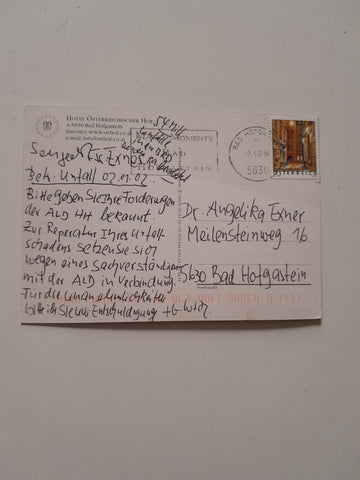 HOTEL ÖSTERREICHISCHER HOF
A 5630 Bad Hofgastein
Internet: www.oehof.co.at
e-mail: info@oehof.co.at
MOMENTS
Exner
Betr. Unfall 02.01.02.
Bitte geben Sie Ihre Forderungen
der ALD HH bekannt.
Zur Reperatur Ihres Unfall-
schadens setzen Sie sich
wegen eines Sachverständigen
mit der ALD in Verbindung.
Für die Unannehmlichkeiten
bitte ich Sie um Entschuldigung
BAD HOFGASTEIN
5630
ÖSTERREICH
Dr. Angelika Exner
Meilensteinweg 16
5630 Bad Hofgastein